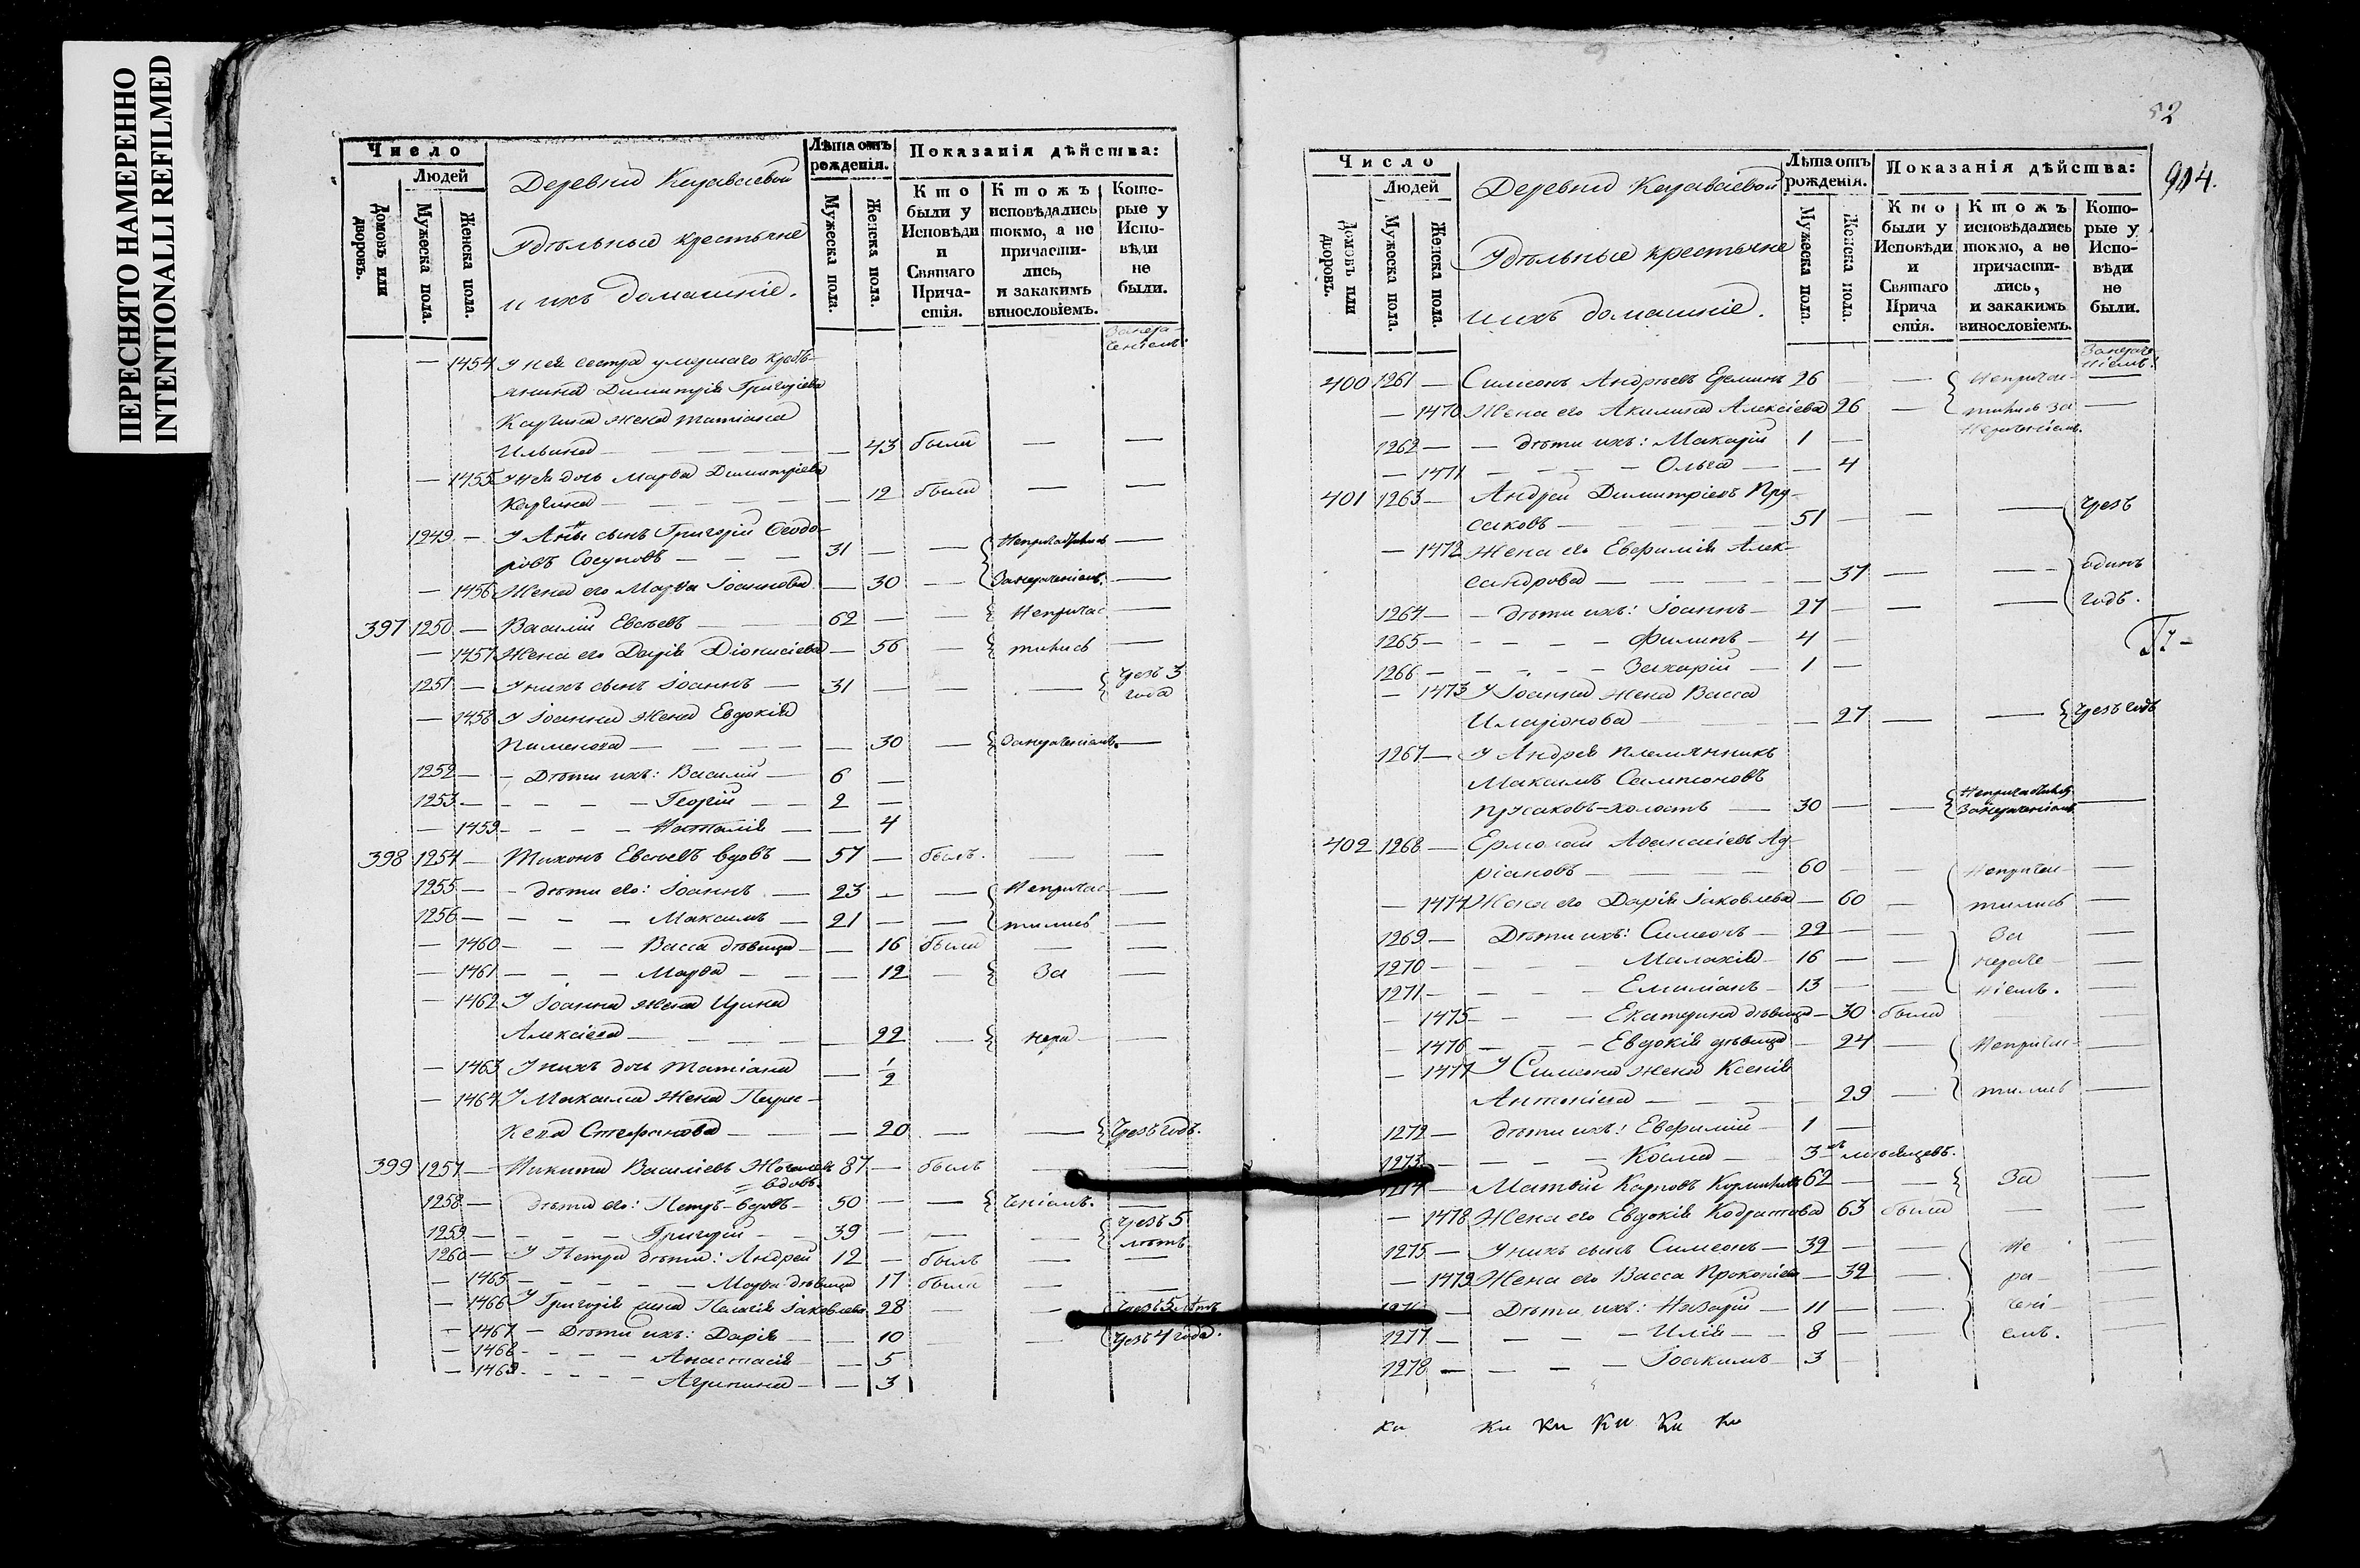 ПЕРЕСНЯТО НАМЕРЕННО
INTENTIONALLI REFILMED
Число
Людей
Домовъ или дворовъ.
Мужеска пола.
Женска пола.
Деревни Караваевой
Удѣльные крестьяне
и ихъ домашніе.
Лѣта отъ рожденія.
Мужеска пола.
Женска пола.
Показанія дѣйства:
Кто были у Исповѣди и Святаго Прича-стія.
Ктожъ исповѣдались токмо, а не причасти-лись, и закакимъ винословіемъ.
Кото-рые у Испо-вѣди не были.
Занера-
ченіемъ:
— 1454 У ней сестра умершаго кресть-
янина Димитрія Григоріева
жена Татіана
Ильина — — 43 была — —
— 1455 У ней дочь Марѳа Димитріева
— 12 была — —
1249 — У Анны сынъ Григорій Ѳеодо-
ровъ Сосуновъ — 31 — — —
— 1456 Жена его Марѳа Іоаннова — 30 — Занераченіемъ. —
397 1250 — Василій Евсѣевъ — 62 — — Непричас —
— 1457 Жена его Дарія Діонисіева — 56 — тились —
1251 — У нихъ сынъ Іоаннъ — 31 — — — Чрезъ 3
года
— 1458 У Іоанна жена Евдокія
Пименова — — 30 — Занераченіемъ. —
1252 — — Дѣти ихъ: Василій — 6 —
1253 — — — — Георгій — 2 —
— 1459 — — — Наталія — — 4
398 1254 — Тихонъ Евсѣевъ вдовъ — 57 — былъ. — —
1255 — — дѣти его: Іоаннъ — 23 — — Непричас- —
1256 — — — — Максимъ — 21 — — тились —
— 1460 — — — Васса дѣвица — — 16 была — —
— 1461 — — — Марѳа — — 12 — За —
— 1462 У Іоанна жена Ирина
Алексіева — — 22 — нера —
— 1463 У нихъ дочь Татіана — 1/2
— 1464 У Максима жена Парас-
кева Стефанова — — 20 — — Чрезъ годъ.
399 1257 — Никита Василіевъ 87 — былъ — —
= вдовъ.
1258 — дѣти его: Петръ — вдовъ — 50 — — ченіемъ. —
1259 — — — — Григорій — 39 — — — Чрезъ 5
лѣтъ
1260 — У Петра дѣти: Андрей 12 — былъ — —
— 1465 — — — — Марѳа дѣвица 17 была — —
— 1466 У Григорія жена Пелагія Іаковлева 28 — — Чрезъ 5 лѣтъ
— 1467 — Дѣти ихъ: Дарія — — 10 — Чрезъ 4 года.
— 1468 — — — — Анастасія — — 5
— 1469 — — — — Агрипина — — 3
52
904.
Число
Людей
Домовъ или дворовъ.
Мужеска пола.
Женска пола.
Деревни Караваевой
Удѣльные крестьяне
и ихъ домашніе.
Лѣта отъ рожденія.
Мужеска пола.
Женска пола.
Показанія дѣйства:
Кто были у Исповѣди и Святаго Прича стія.
Ктожъ исповѣдались токмо, а не причасти-лись, и закакимъ винословіемъ.
Кото-рые у Испо-вѣди не были.
Занераче-
ніемъ:
400 1261 — Симеонъ Андреевъ Ереминъ 26 — — Непричас- —
— 1470 Жена его Акилина Алексіева 26 — тились за —
Нераченіемъ.
1262 — — дѣти ихъ: Макарій 1 —
— 1471 — — — — Ольга — — 4
401 1263 — Андрей Димитріевъ Пру-
саковъ — 51 — — — Чрезъ
— 1472 Жена его Евфимія Алек-
сандрова — — 37 — — одинъ
1264 — — дѣти ихъ: Іоаннъ — 27 — — — годъ.
1265 — — — — Филипъ — 4 —
1266 — — — — Захарій — 1 —
— 1473 У Іоанна жена Васса
Иларіонова — — 27 — — Чрезъ годъ
1267 — У Андрея племянникъ
Максимъ Сампсоновъ
Прусаковъ — холостъ — 30 — — Занераченіемъ —
402 1268 — Ермолай Аѳанасіевъ Ад-
ріановъ — 60 — — Непричас- —
— 1474 Жена его Дарія Іаковлева — 60 — тились —
1269 — Дѣти ихъ: Симеонъ — 22 — — За —
1270 — — — — Малахія — 16 — — нераче —
1271 — — — — Емиліанъ — 13 — — ніемъ. —
— 1475 — — — Екатерина дѣвица — 30 была
— 1476 — — — Евдокія дѣвица — 24 — Непричас- —
— 1477 У Симеона жена Ксенія
Антонова — — 29 — тились —
1272 — дѣти ихъ: Евфимій — 1 —
1273 — — — — Косма — 3 мѣсяцевъ.
1274 — Матвѣй Карповъ 62 — — За —
— 1478 Жена его Евдокія Кодратова 63 была — —
1275 — У нихъ сынъ Симеонъ — 32 — — Не —
— 1479 Жена его Васса Прокопіева — 32 — ра- —
1276 — Дѣти ихъ: Назарій — 11 — — чені- —
1277 — — — — Илія — 8 — — емъ. —
1278 — — — — Іоакимъ — 3
Ки Ки Ки Ки Ки Ки